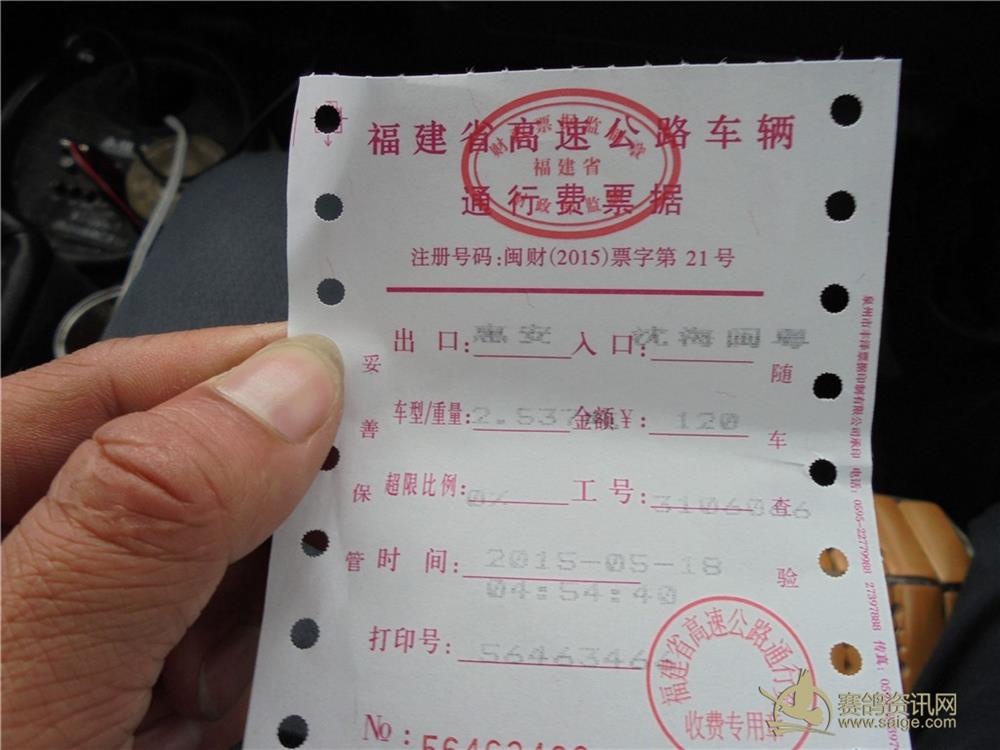 福建省高速公路车辆
福建省
通行费票据
注册号码:闽财(2015)票字第 21 号
出 口: 惠安 入口: 沈海闽粤
车型/重量: 金额¥: 120
超限比例: 0% 工号:
时 间: 2015-05-18
04:54:40
打印号:
No:
妥善保管
随车查验
福建省高速公路通行
收费专用章
泉州市丰泽票据印制有限公司承印 电话: 0595-22779988 27397888 传真:
赛鸽资讯网
www.saige.com